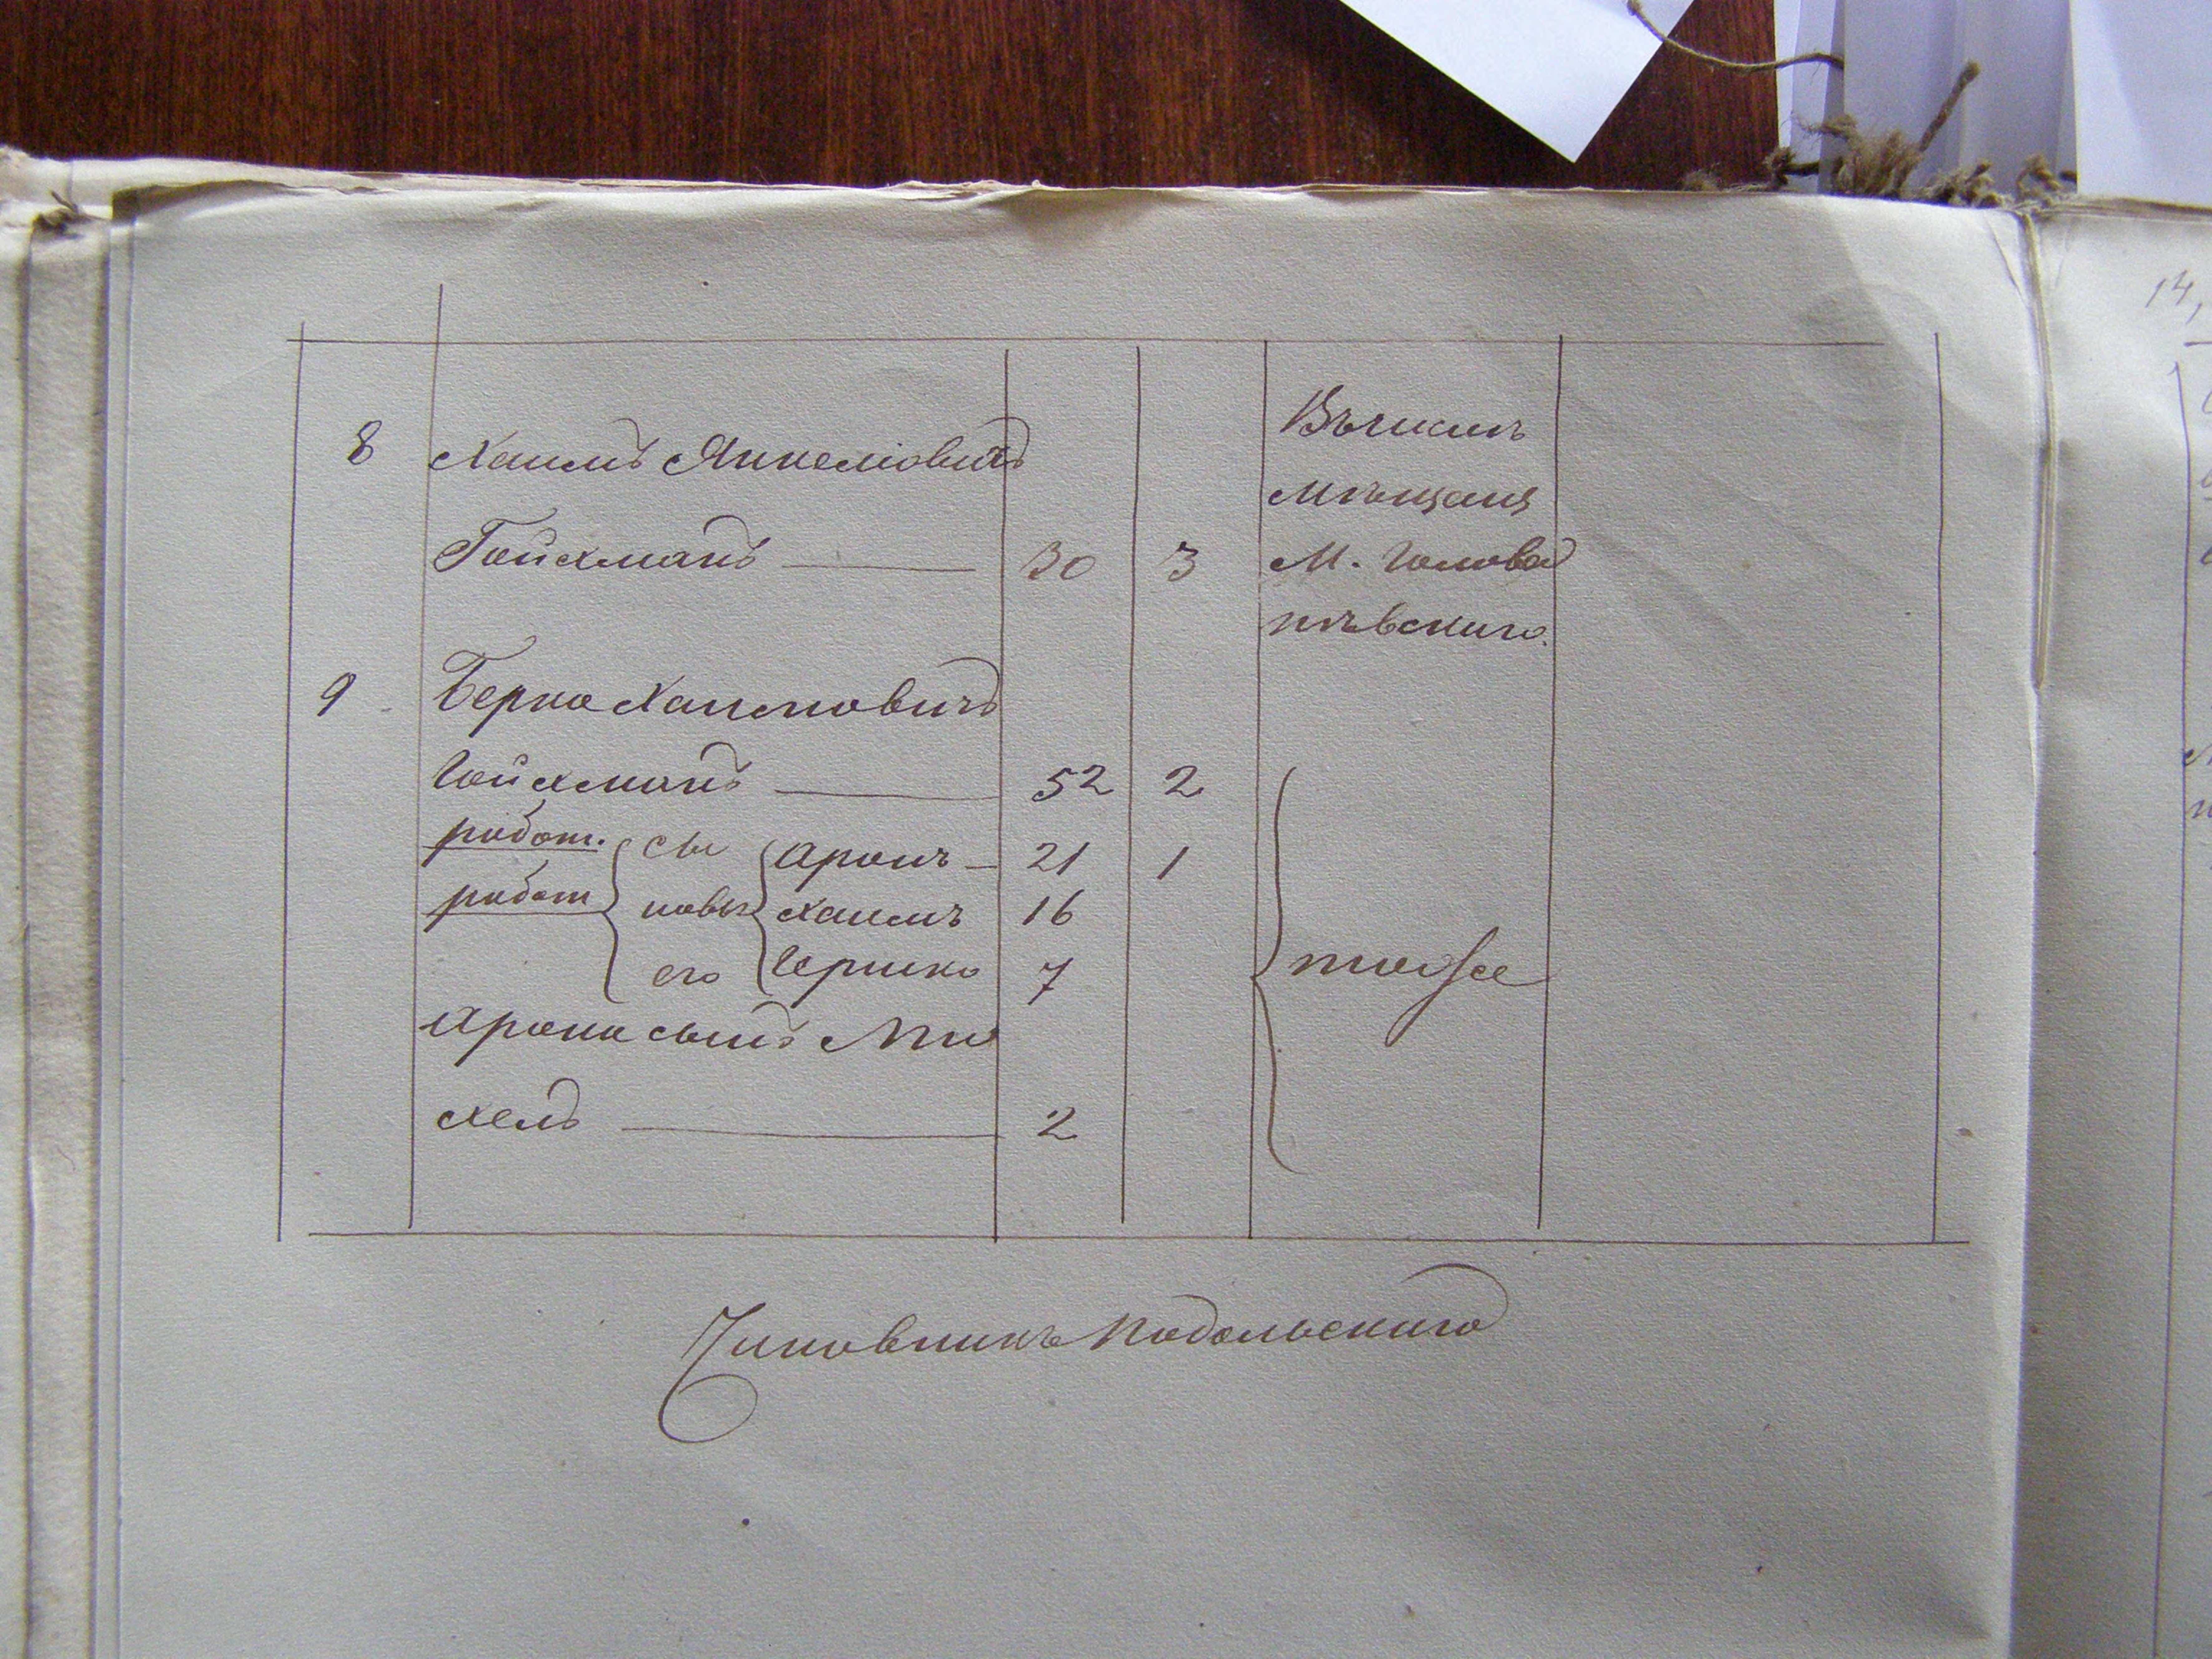 8 Хаимъ Янкеліовичъ
Гойхманъ — 30 3
Въ числѣ
мѣщанъ
М. Голован
нѣвскаго.
9 Берко Хаимовичъ
Гойхманъ — 52 2
работ. сы Аронъ — 21 1
работ новья Хаимъ 16
его Гершко 7
тоже
Арона сынъ Ми
хель — 2
Чиновникъ Подольскаго
14,